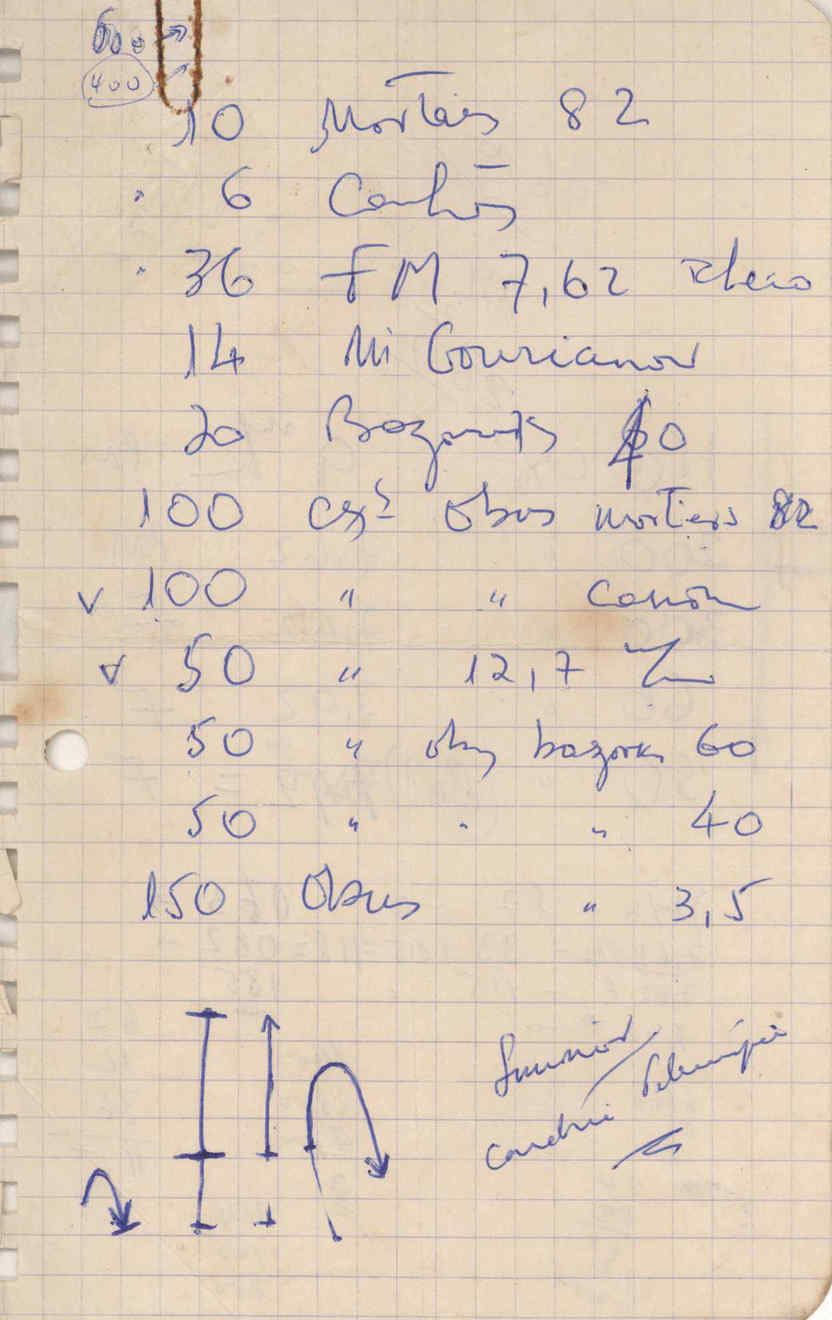 600
400
10 Mortiers 82
6 Canhões
36 FM 7,62
14 Mi Gourianov
20 Bazookas 60
100 cxs obus mortiers 82
v 100 " " canon
v 50 " 12,7
50 " obus bazooka 60
50 " " " 40
150 Obus " 3,5